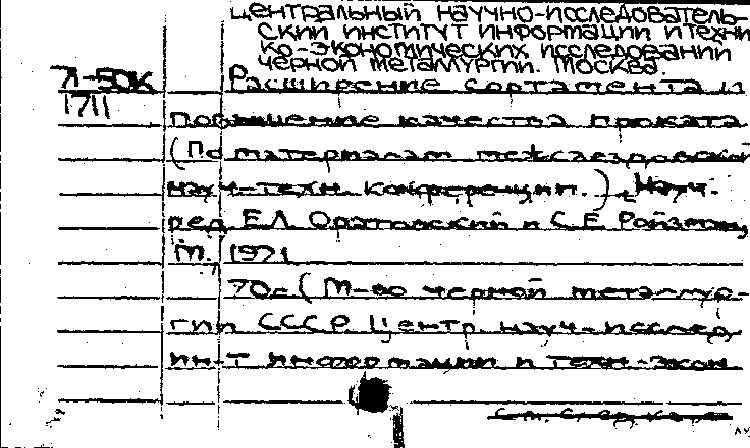 Центральный научно-исследователь-
ский институт информации и техни
ко-экономических исследований
черной металлургии. Москва.
Л-50К Расширение сортамента и
1711 повышение качества проката
(По материалам межзаводской
науч-техн. конференции.) Науч.
ред. Е.Л. Оратовский и С.Е. Ройзман,
М. 1971
70с. (М-во черной металлур-
гии СССР. Центр. науч-исслед
ин-т информации и техн-экон
См. след. карт